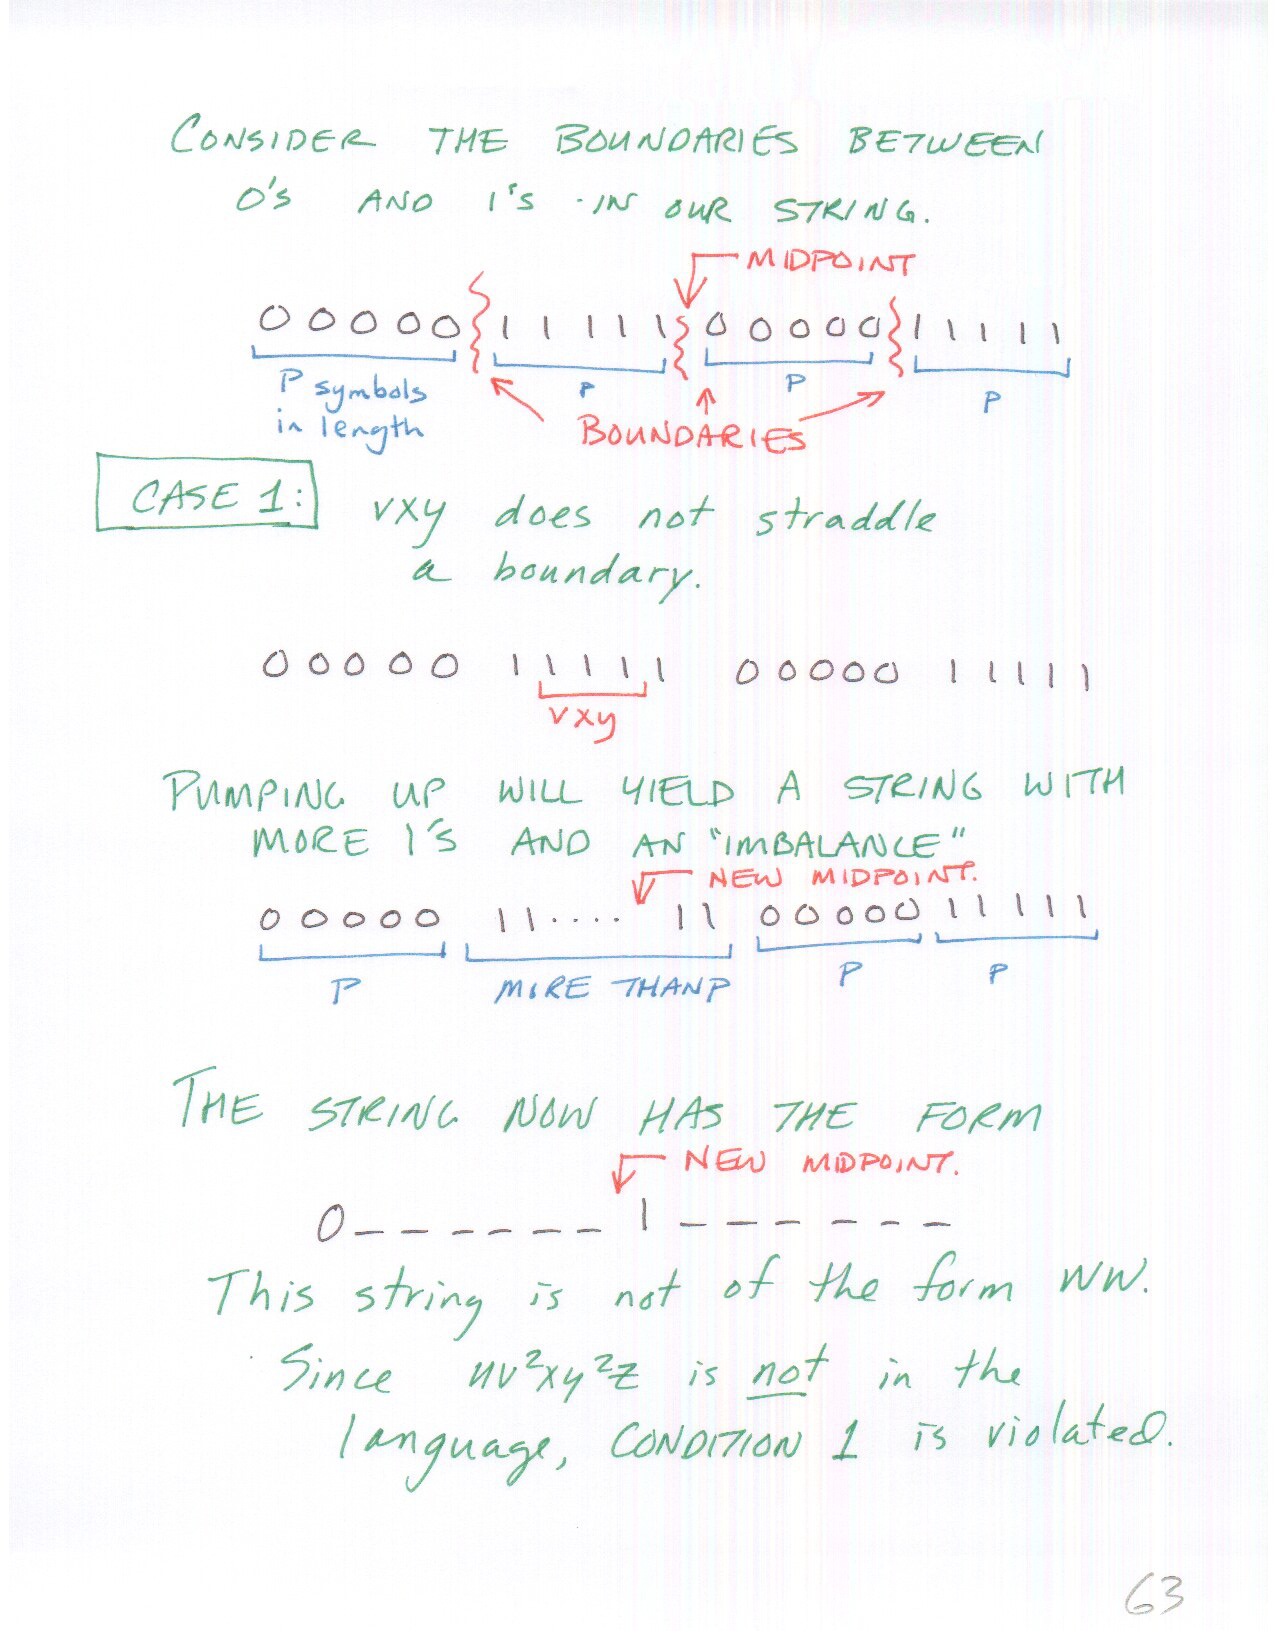 CONSIDER THE BOUNDARIES BETWEEN
0's AND 1's IN OUR STRING.
MIDPOINT
0 0 0 0 0 1 1 1 1 1 0 0 0 0 0 1 1 1 1 1
P symbols in length P P P
BOUNDARIES
CASE 1: vxy does not straddle
a boundary.
0 0 0 0 0 1 1 1 1 1 0 0 0 0 0 1 1 1 1 1
vxy
PUMPING UP WILL YIELD A STRING WITH
MORE 1'S AND AN "IMBALANCE"
NEW MIDPOINT.
0 0 0 0 0 1 1 .... 1 1 0 0 0 0 0 1 1 1 1 1
P MORE THAN P P P
THE STRING NOW HAS THE FORM
NEW MIDPOINT.
0 _ _ _ _ _ _ 1 _ _ _ _ _ _
This string is not of the form WW.
Since uv²xy²z is not in the
language, CONDITION 1 is violated.
63